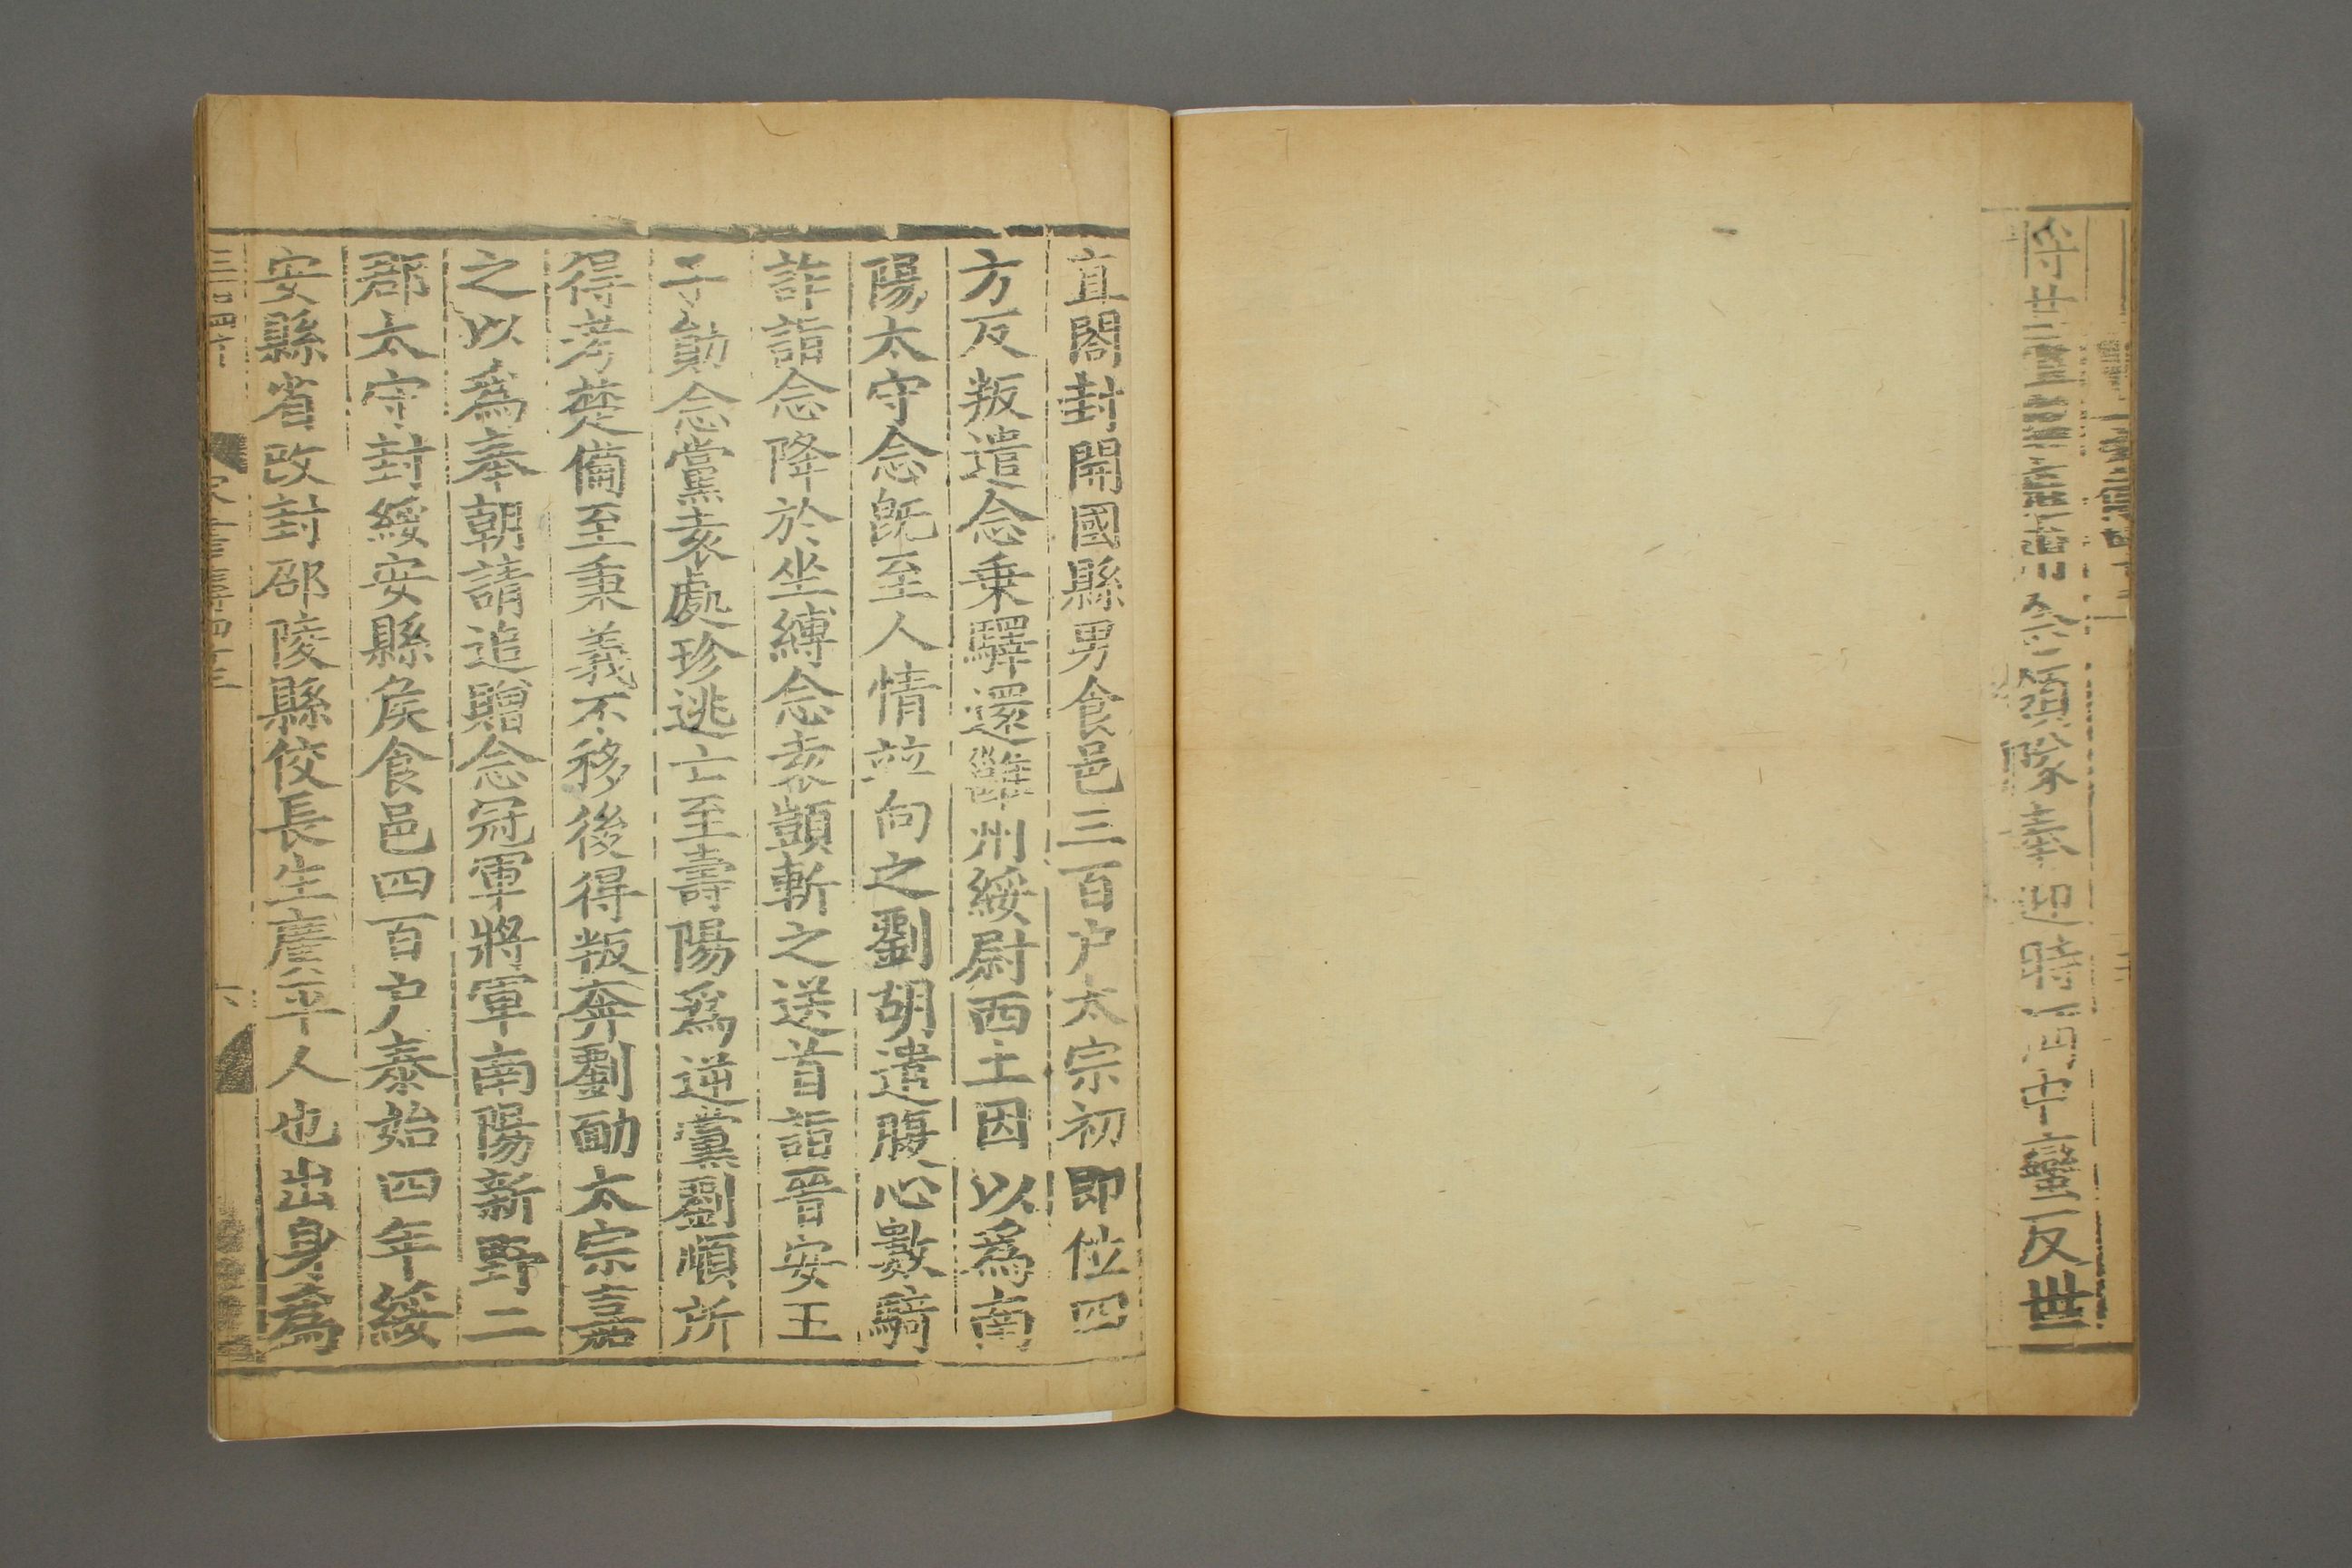 領隊奉迎時沔中蠻反世
直閤封開國縣男食邑三百户太宗初即位四
方反叛遣念乗驛還雝州綏尉西土因以爲南
陽太守念旣至人情竝向之劉胡遣腹心數騎
詐詣念降於坐縛念袁顗斬之送首詣晉安王
子勛念黨袁處珍逃亡至壽陽爲逆黨劉順所
得考楚備至秉義不移後得叛奔劉勔太宗嘉
之以爲奉朝請追贈念冠軍將軍南陽新野二
郡太守封綏安縣侯食邑四百户泰始四年綏
安縣省改封邵陵縣佼長生廣平人也出身爲
宋書列傳四十三
六